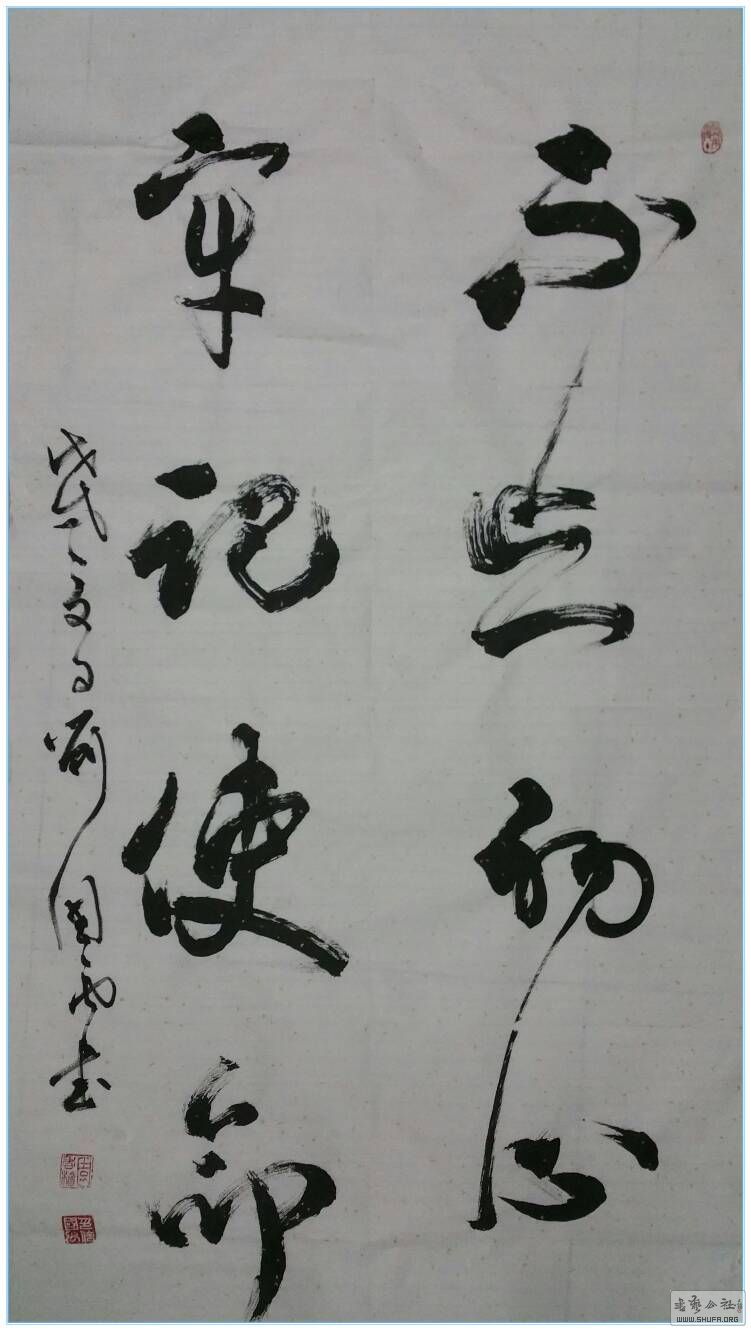 不忘初心
牢记使命
戊戌之夏月刘国西书
书艺公社
WWW.SHUFA.ORG